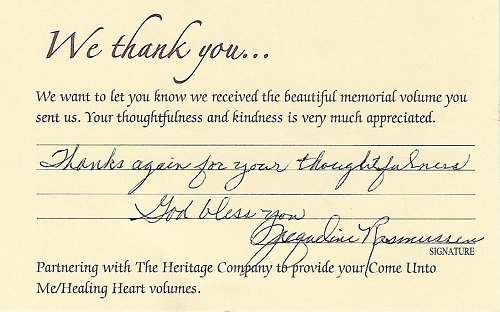 We thank you...
We want to let you know we received the beautiful memorial volume you
sent us. Your thoughtfulness and kindness is very much appreciated.
Thanks again for your thoughtfulness
God bless you
Jacqueline Rasmussen
SIGNATURE
Partnering with The Heritage Company to provide your Come Unto
Me/Healing Heart volumes.